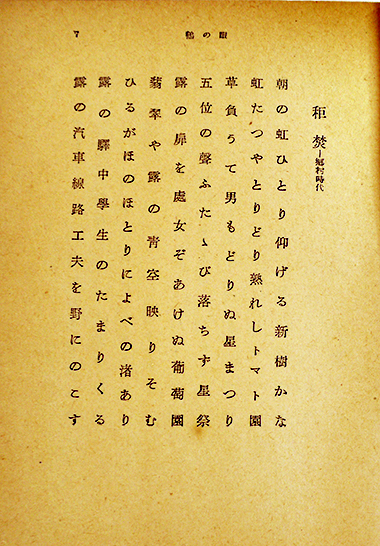 鶴の眼
7
秬焚 ―郷村時代
朝の虹ひとり仰げる新樹かな
虹たつやとりどり熟れしトマト園
草負うて男もどりぬ星まつり
五位の聲ふたゝび落ちず星祭
露の扉を處女ぞあけぬ葡萄園
翡翠や露の青空映りそむ
ひるがほのほとりによべの渚あり
露の驛中學生のたまりくる
露の汽車線路工夫を野にのこす